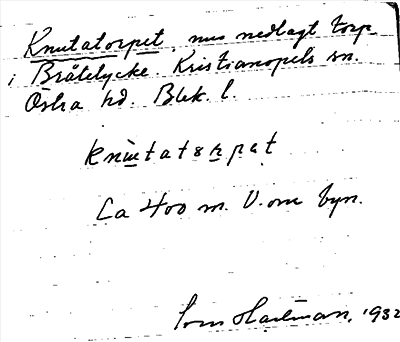 Knutatorpet, nu nedlagt torp
i Bråtelycke. Kristianopels sn.
Östra hd. Blek. l.
knutatorpat
Ca 400 m. V. om byn.
Hartman, 1932